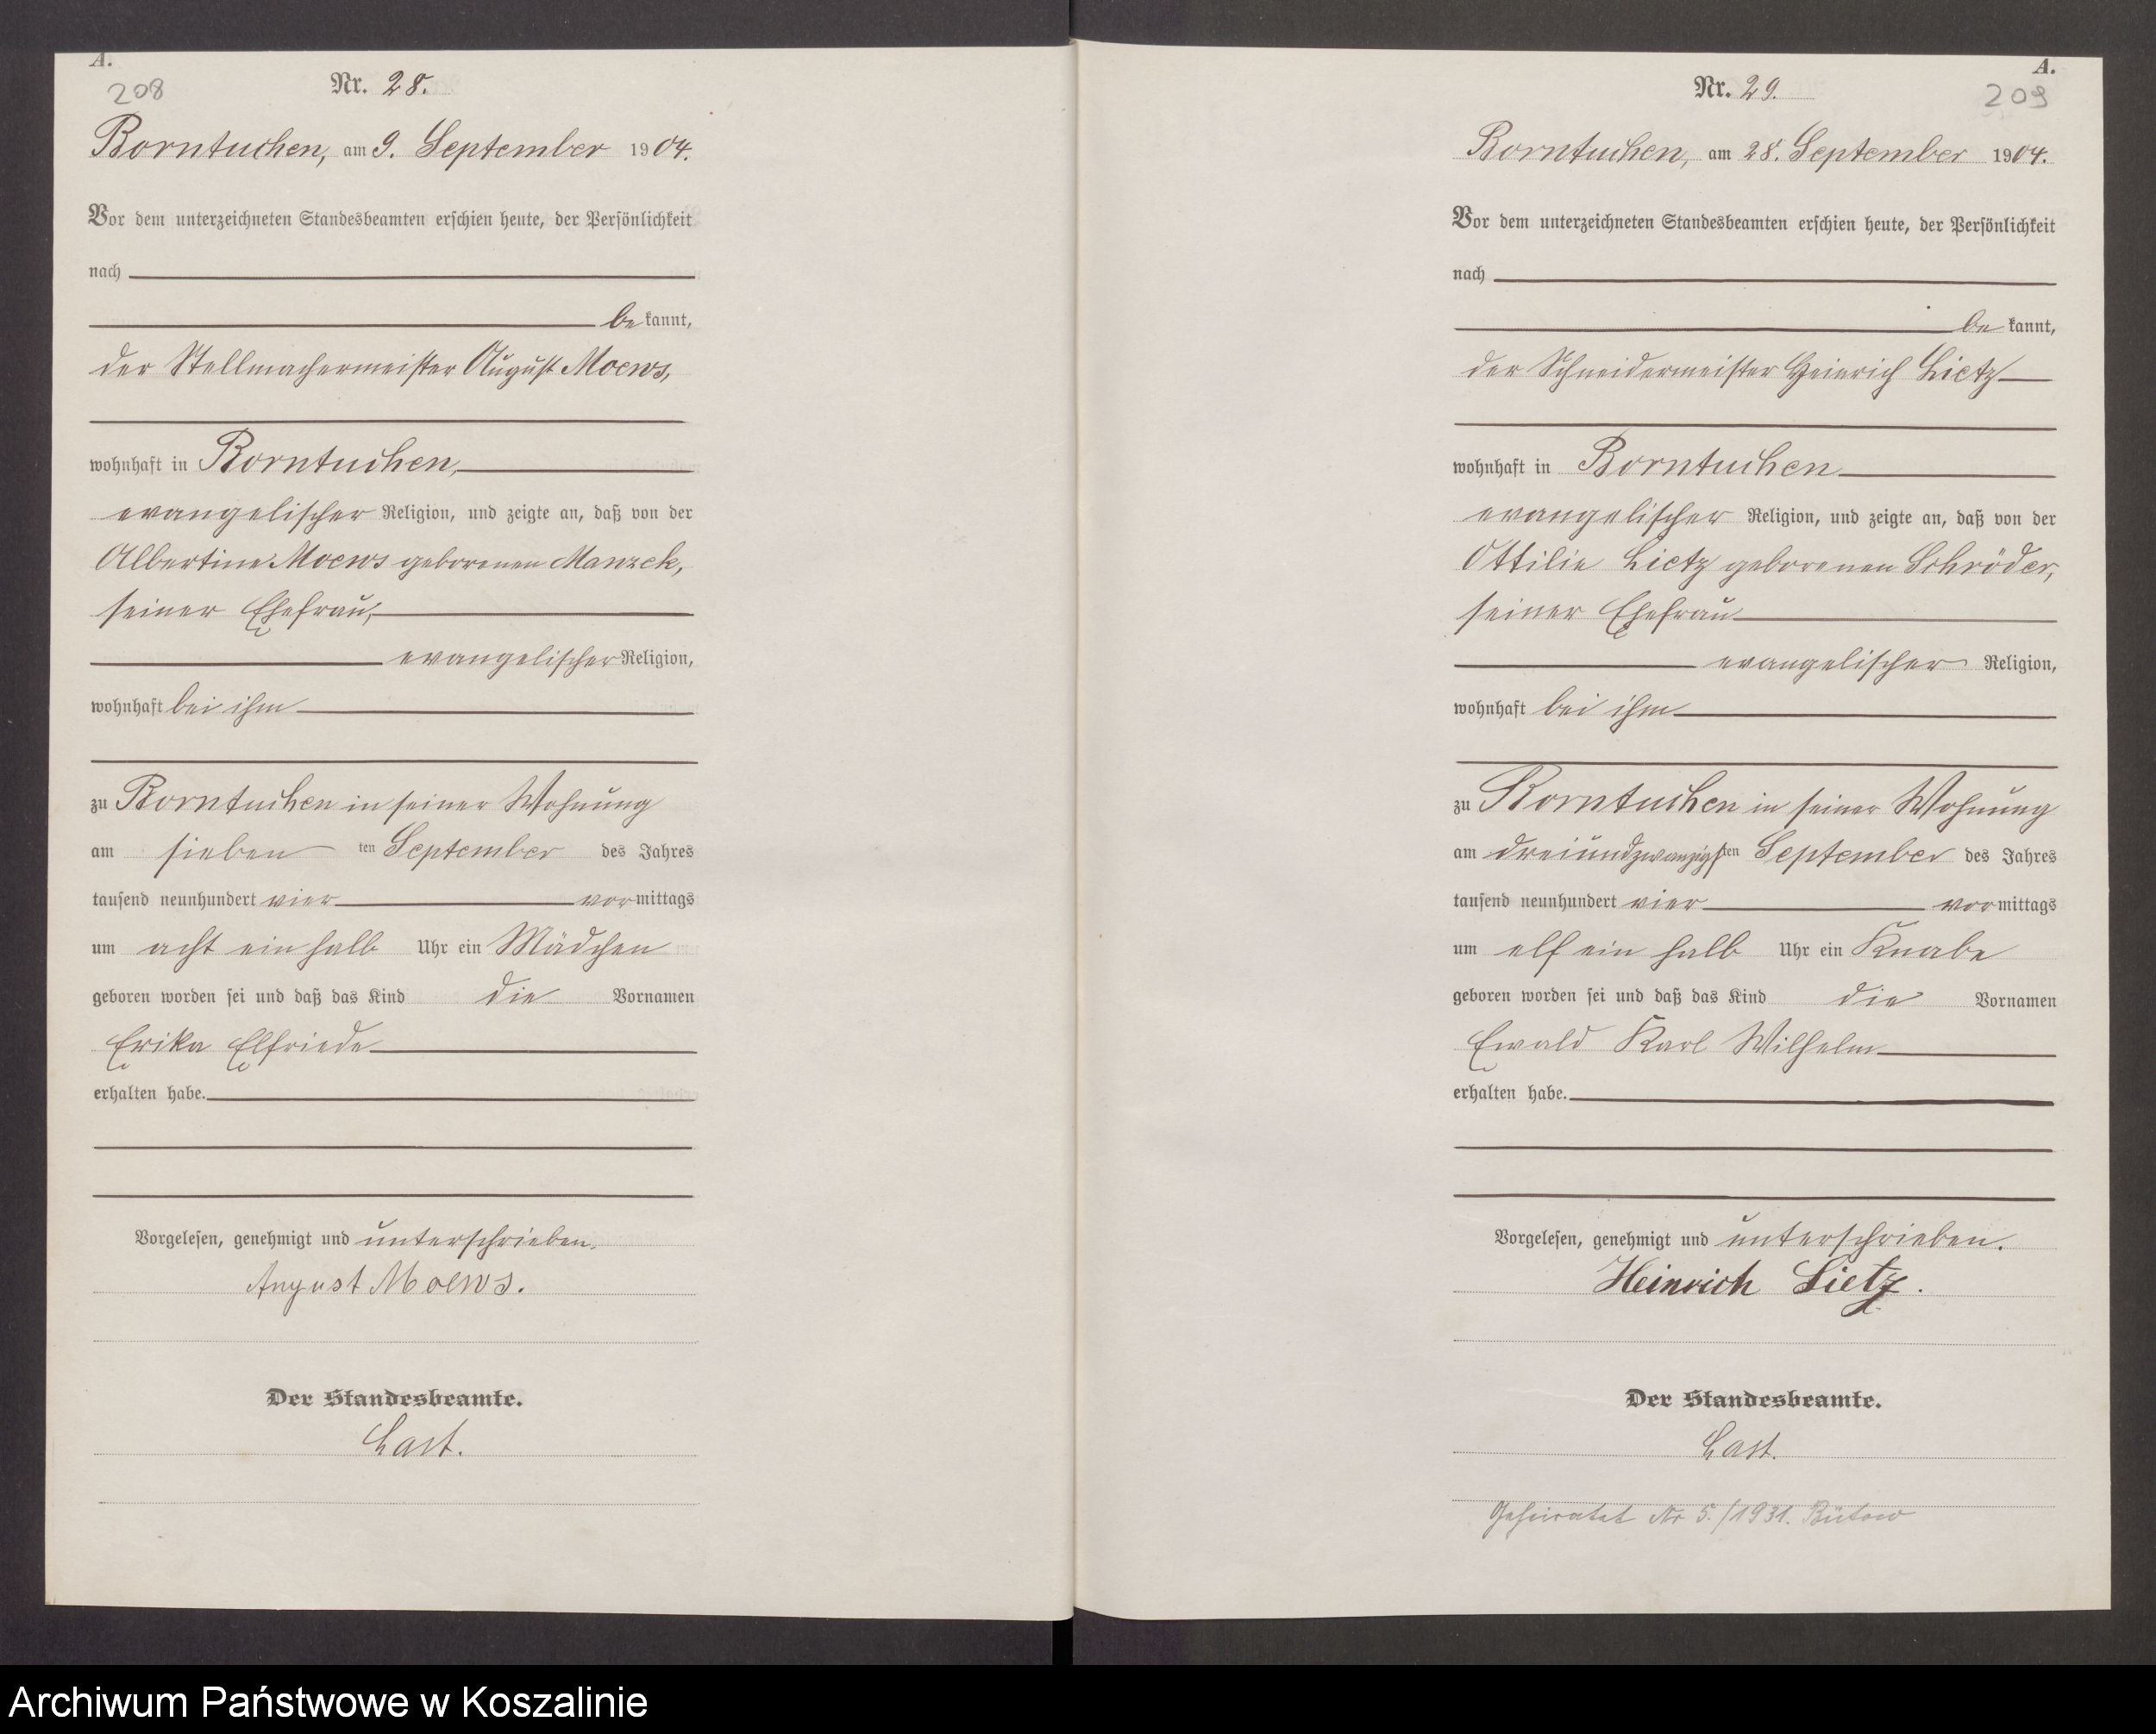 A.
208
Nr. 28.
Borntuchen, am 9. September 1904.
Vor dem unterzeichneten Standesbeamten erschien heute, der Persönlichkeit
nach
be kannt,
der Stellmachermeister August Moews,
wohnhaft in Borntuchen,
evangelischer Religion, und zeigte an, daß von der
Albertine Moews geborenen Manzek,
seiner Ehefrau,
evangelischer Religion,
wohnhaft bei ihm
zu Borntuchen in seiner Wohnung
am sieben ten September des Jahres
tausend neunhundert vier vormittags
um acht ein halb Uhr ein Mädchen
geboren worden sei und daß das Kind die Vornamen
Erika Elfriede
erhalten habe.
Vorgelesen, genehmigt und unterschrieben.
August Moews.
Der Standesbeamte.
Last.
A.
209
Nr. 29.
Borntuchen, am 28. September 1904.
Vor dem unterzeichneten Standesbeamten erschien heute, der Persönlichkeit
nach
be kannt,
der Schneidermeister Heinrich Lietz
wohnhaft in Borntuchen
evangelischer Religion, und zeigte an, daß von der
Ottilie Lietz geborenen Schröder,
seiner Ehefrau
evangelischer Religion,
wohnhaft bei ihm
zu Borntuchen in seiner Wohnung
am dreiundzwanzigsten September des Jahres
tausend neunhundert vier vormittags
um elf ein halb Uhr ein Knabe
geboren worden sei und daß das Kind die Vornamen
Ewald Karl Wilhelm
erhalten habe.
Vorgelesen, genehmigt und unterschrieben.
Heinrich Lietz.
Der Standesbeamte.
Last.
Geheiratet Nr 5./1931. Bütow
Archiwum Państwowe w Koszalinie